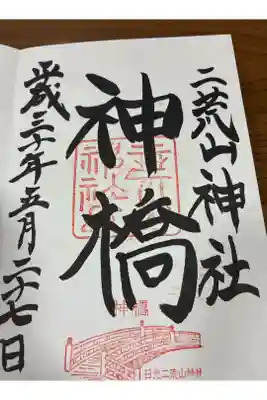 二荒山神社
神橋
平成三十年五月二十七日
神橋
日光二荒山神社